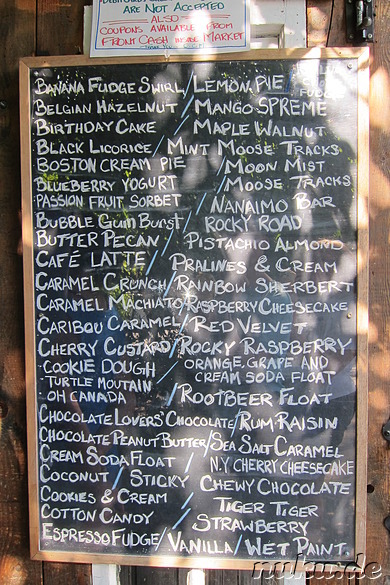 ARE NOT ACCEPTED
ALSO
COUPONS AVAILABLE FROM
FRONT CASH INSIDE MARKET
THANK YOU
BANANA FUDGE SWIRL / LEMON PIE
FUDGE
BELGIAN HAZELNUT / MANGO SPREME
BIRTHDAY CAKE / MAPLE WALNUT
BLACK LICORICE / MINT MOOSE TRACKS
BOSTON CREAM PIE / MOON MIST
BLUEBERRY YOGURT / MOOSE TRACKS
PASSION FRUIT SORBET / NANAIMO BAR
BUBBLE GUM BURST / ROCKY ROAD
BUTTER PECAN / PISTACHIO ALMOND
CAFÉ LATTE / PRALINES & CREAM
CARAMEL CRUNCH / RAINBOW SHERBERT
CARAMEL MACHIATO / RASPBERRY CHEESECAKE
CARIBOU CARAMEL / RED VELVET
CHERRY CUSTARD / ROCKY RASPBERRY
COOKIE DOUGH / ORANGE, GRAPE AND
CREAM SODA FLOAT
TURTLE MOUTAIN
OH CANADA / ROOTBEER FLOAT
CHOCOLATE LOVERS CHOCOLATE / RUM RAISIN
CHOCOLATE PEANUT BUTTER / SEA SALT CARAMEL
CREAM SODA FLOAT / N.Y CHERRY CHEESECAKE
COCONUT / STICKY CHEWY CHOCOLATE
COOKIES & CREAM / TIGER TIGER
COTTON CANDY / STRAWBERRY
ESPRESSO FUDGE / VANILLA / WET PAINT